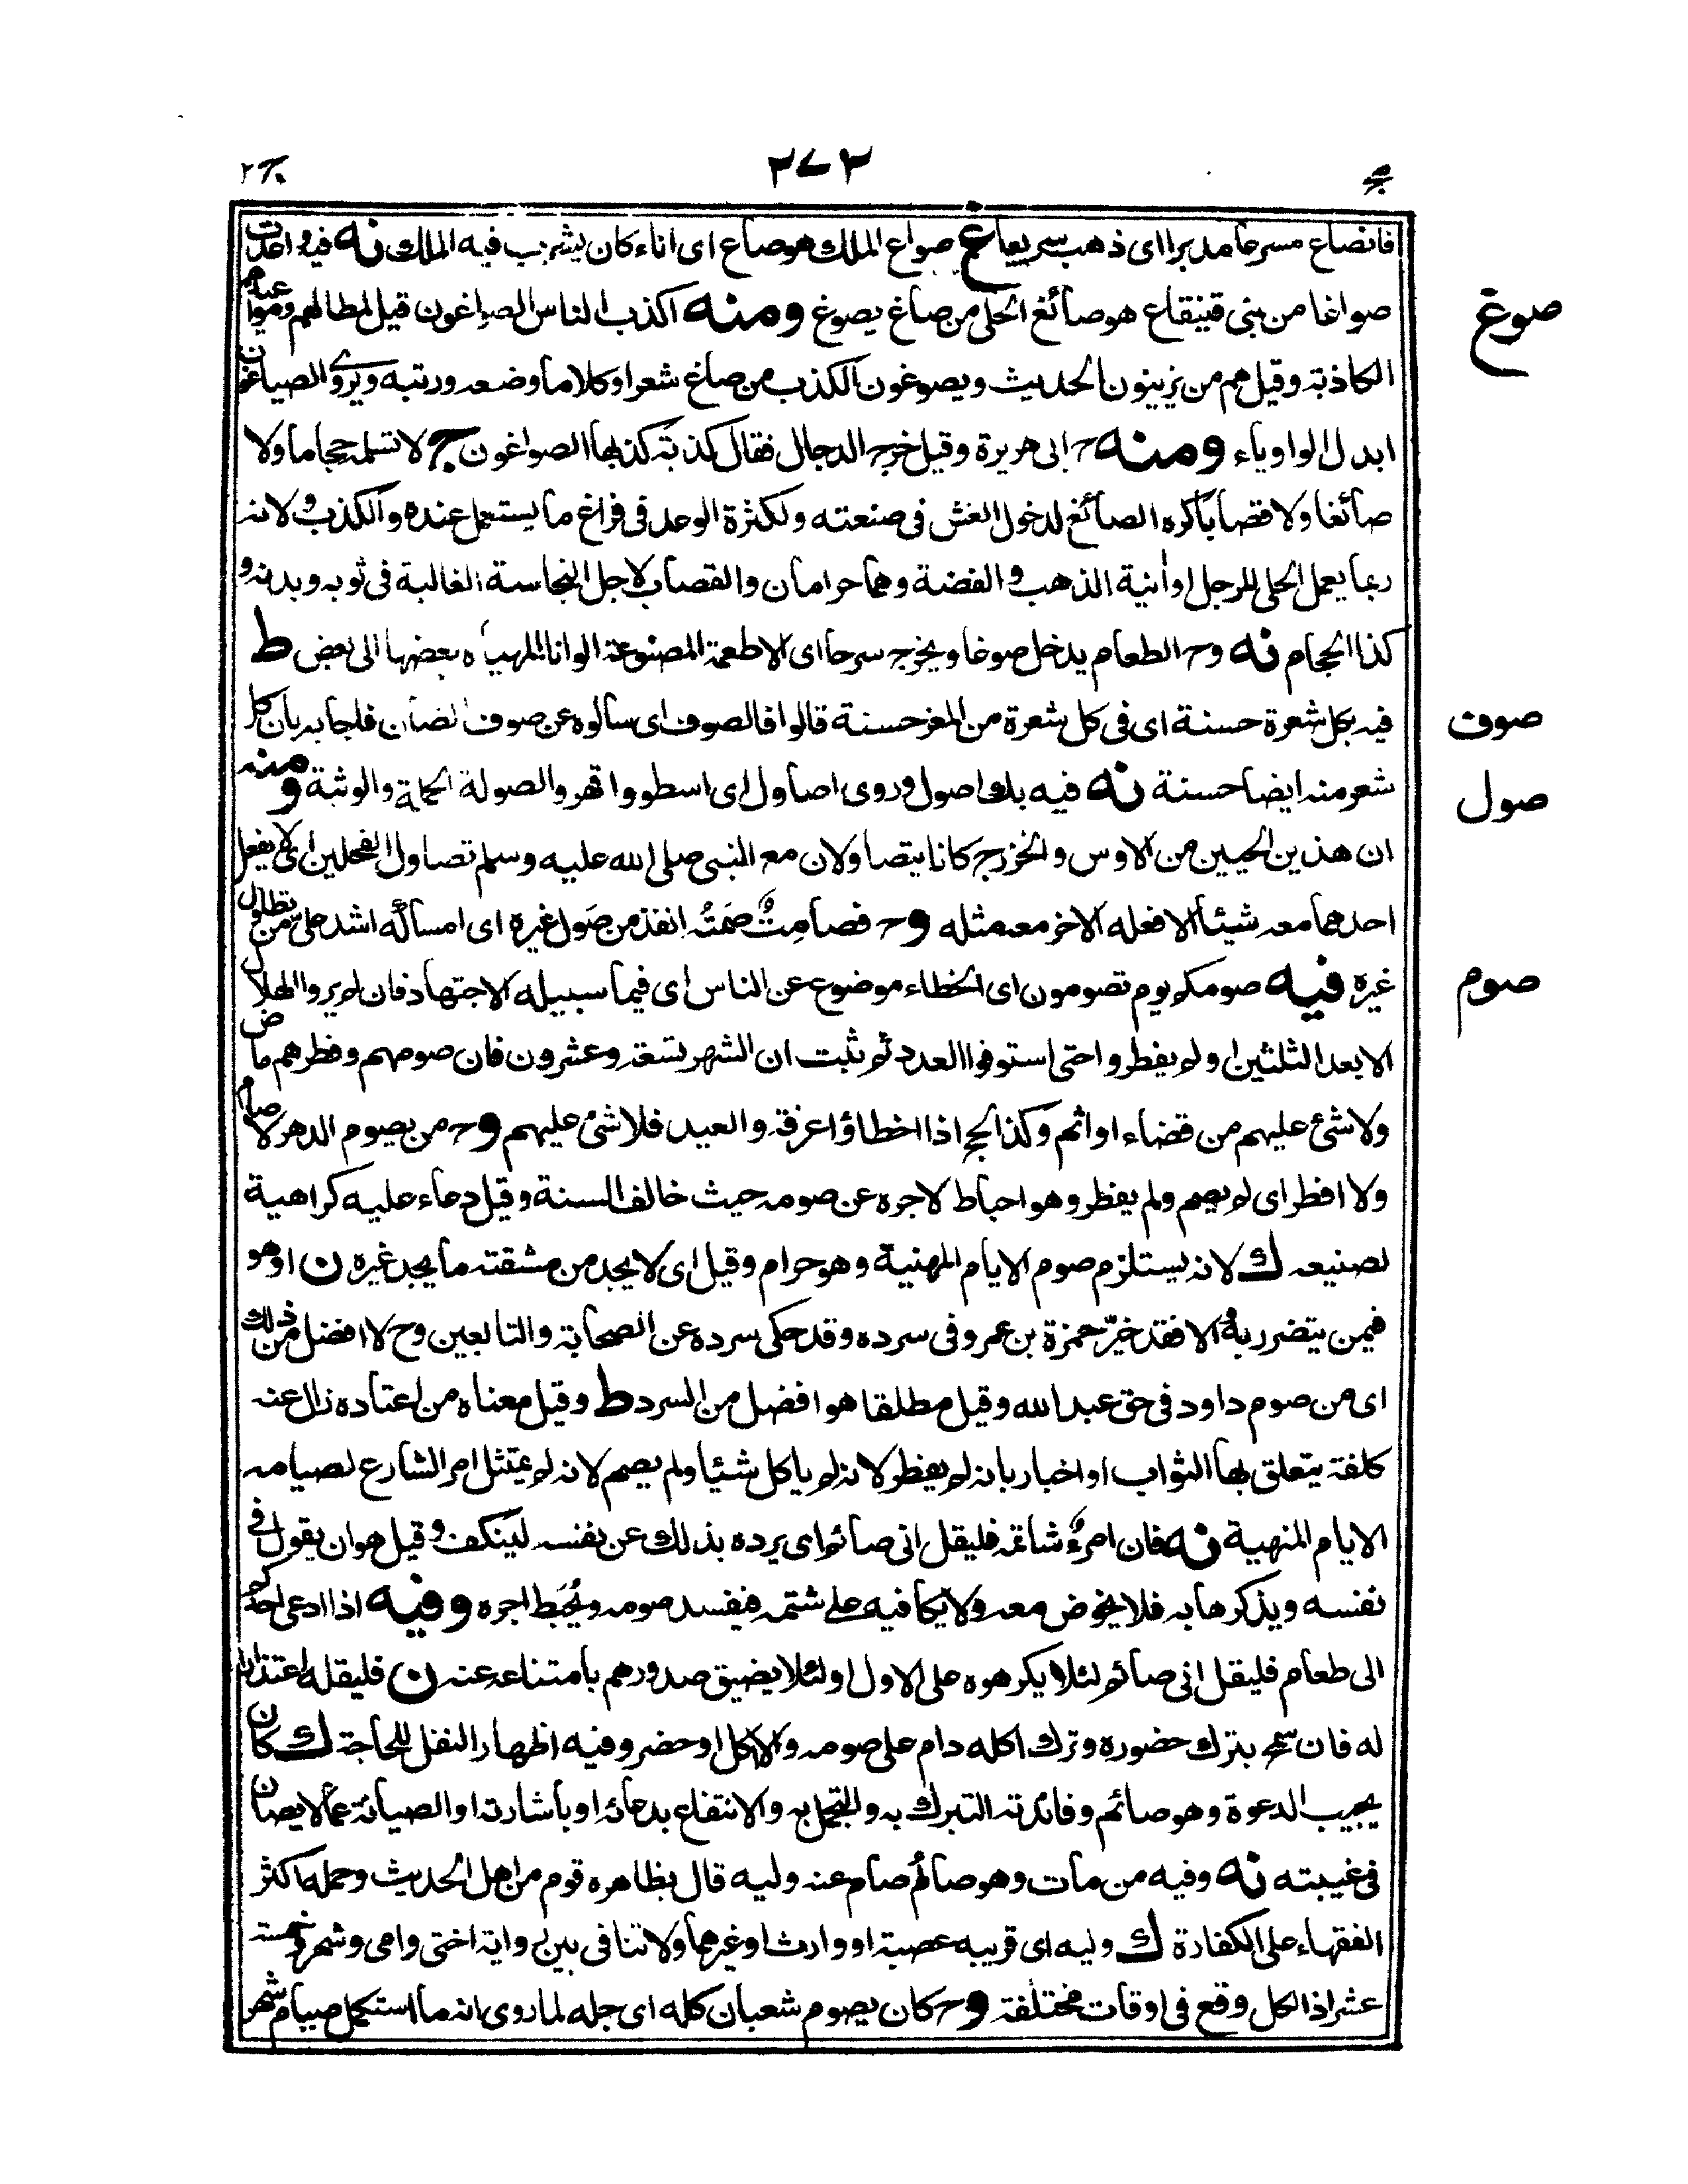 ٢٧٢
فانصاع مسرعا مدبرا اى ذهب سريعا غ صواع الملك هو صاع اى اناء كان يشرب فيه الملك نه فيه واعدت
صوغ
صواغا من بنى قينقاع هو صائغ الحلى من صاغ يصوغ ومنه اكذب الناس الصواغون قيل لمطالهم ومواعيدهم
الكاذبة وقيل هم من يزينون الحديث ويصوغون الكذب من صاغ شعرا وكلاما وضعه ورتبه ويروى الصياغون
ابدل الواو ياء ومنه ح ابى هريرة وقيل خرج الدجال فقال كذبة كذبها الصواغون ج لا تسلمه حجاما ولا
صائغا ولا قصابا كره الصائغ لدخول الغش فى صنعته ولكثرة الوعد فى فراغ ما يستعمل عنده والكذب ولانه
ربما يعمل الحلى للرجل او آنية الذهب والفضة وهما حرامان والقصاب لاجل النجاسة الغالبة فى ثوبه وبدنه و
كذا الحجام نه وح الطعام يدخل صوغا ويخرج سرحا اى الاطعمة المصنوعة الوانا بعضها الى بعض ط
صوف
فيه بكل شعرة حسنة اى فى كل شعرة من المعز حسنة قالوا فالصوف اى سالوه عن صوف الضان فاجابه بان كل
صول
شعر منه ايضا حسنة نه فيه بك اصول وروى اصاول اى اسطو واقهر والصولة الحملة والوثبة ومنه
ان هذين الحيين من الاوس والخزرج كانا يتصاولان مع النبى صلى الله عليه وسلم تصاول الفحلين اى لا يفعل
احدهما معه شيئا الا فعله الاخر معه مثله وح فصامِتٌ صَمْتُه انفذ من صَول غيره اى امساكه اشد على من تطاول
صوم
غيره فيه صومكم يوم تصومون اى الخطاء موضوع عن الناس اى فيما سبيله الاجتهاد فان لم يروا الهلال
الا بعد الثلثين ولم يفطروا حتى استوفوا العدد ثم ثبت ان الشهر تسعة وعشرون فان صومهم وفطرهم ماض
ولا شئ عليهم من قضاء او اثم وكذا الحج اذا اخطاؤا عرفة والعيد فلا شئ عليهم وح من يصوم الدهر لا صام
ولا افطر اى لم يصم ولم يفطر وهو احباط لاجره عن صومه حيث خالف السنة وقيل دعاء عليه كراهية
لصنيعه ك لانه يستلزم صوم الايام المنهية وهو حرام وقيل اى لا يجد من مشقته ما يجد غيره ن او هو
فيمن يتضرر به والا فقد خيّر حمزة بن عمرو فى سرده وقد حكى سرده عن الصحابة والتابعين وح لا افضل من ذلك
اى من صوم داود فى حق عبد الله وقيل مطلقا هو افضل من السرد ط وقيل معناه من اعتاده زال عنه
كلفة يتعلق بها الثواب او اخبار بانه لم يفطر لانه لم ياكل شيئا ولم يصم لانه لم يمتثل امر الشارع لصيامه
الايام المنهية نه فان امرءٌ شاتمه فليقل انى صائم اى يرده بذلك عن نفسه لينكف وقيل هو ان يقول فى
نفسه ويذكرها به فلا يخوض معه ولا يكافيه على شتمه فيفسد صومه ويُحبَط اجره وفيه اذا ادعى احدكم
الى طعام فليقل انى صائم لئلا يكرهوه على الاول او لئلا يضيق صدورهم بامتناعه عنه ن فليقله اعتذارا
له فان سمح بترك حضوره وترك اكله دام على صومه والا اكل او حضر وفيه اظهار النفل للحاجة ك كان
يجيب الدعوة وهو صائم وفائدته التبرك به والتجمل به والانتفاع بدعائه او باشارته او الصيانة عما لا يصان
فى غيبته نه وفيه من مات وهو صائم صام عنه وليه قال بظاهره قوم من اهل الحديث وحمله اكثر
الفقهاء على الكفارة ك وليه اى قريبه عصبة او وارثا وغيرهما ولا تنافى بين رواية اختى وامى وشهر وخمسة
عشر اذ الكل وقع فى اوقات مختلفة وح كان يصوم شعبان كله اى جله لما روى انه ما استكمل صيام شهر